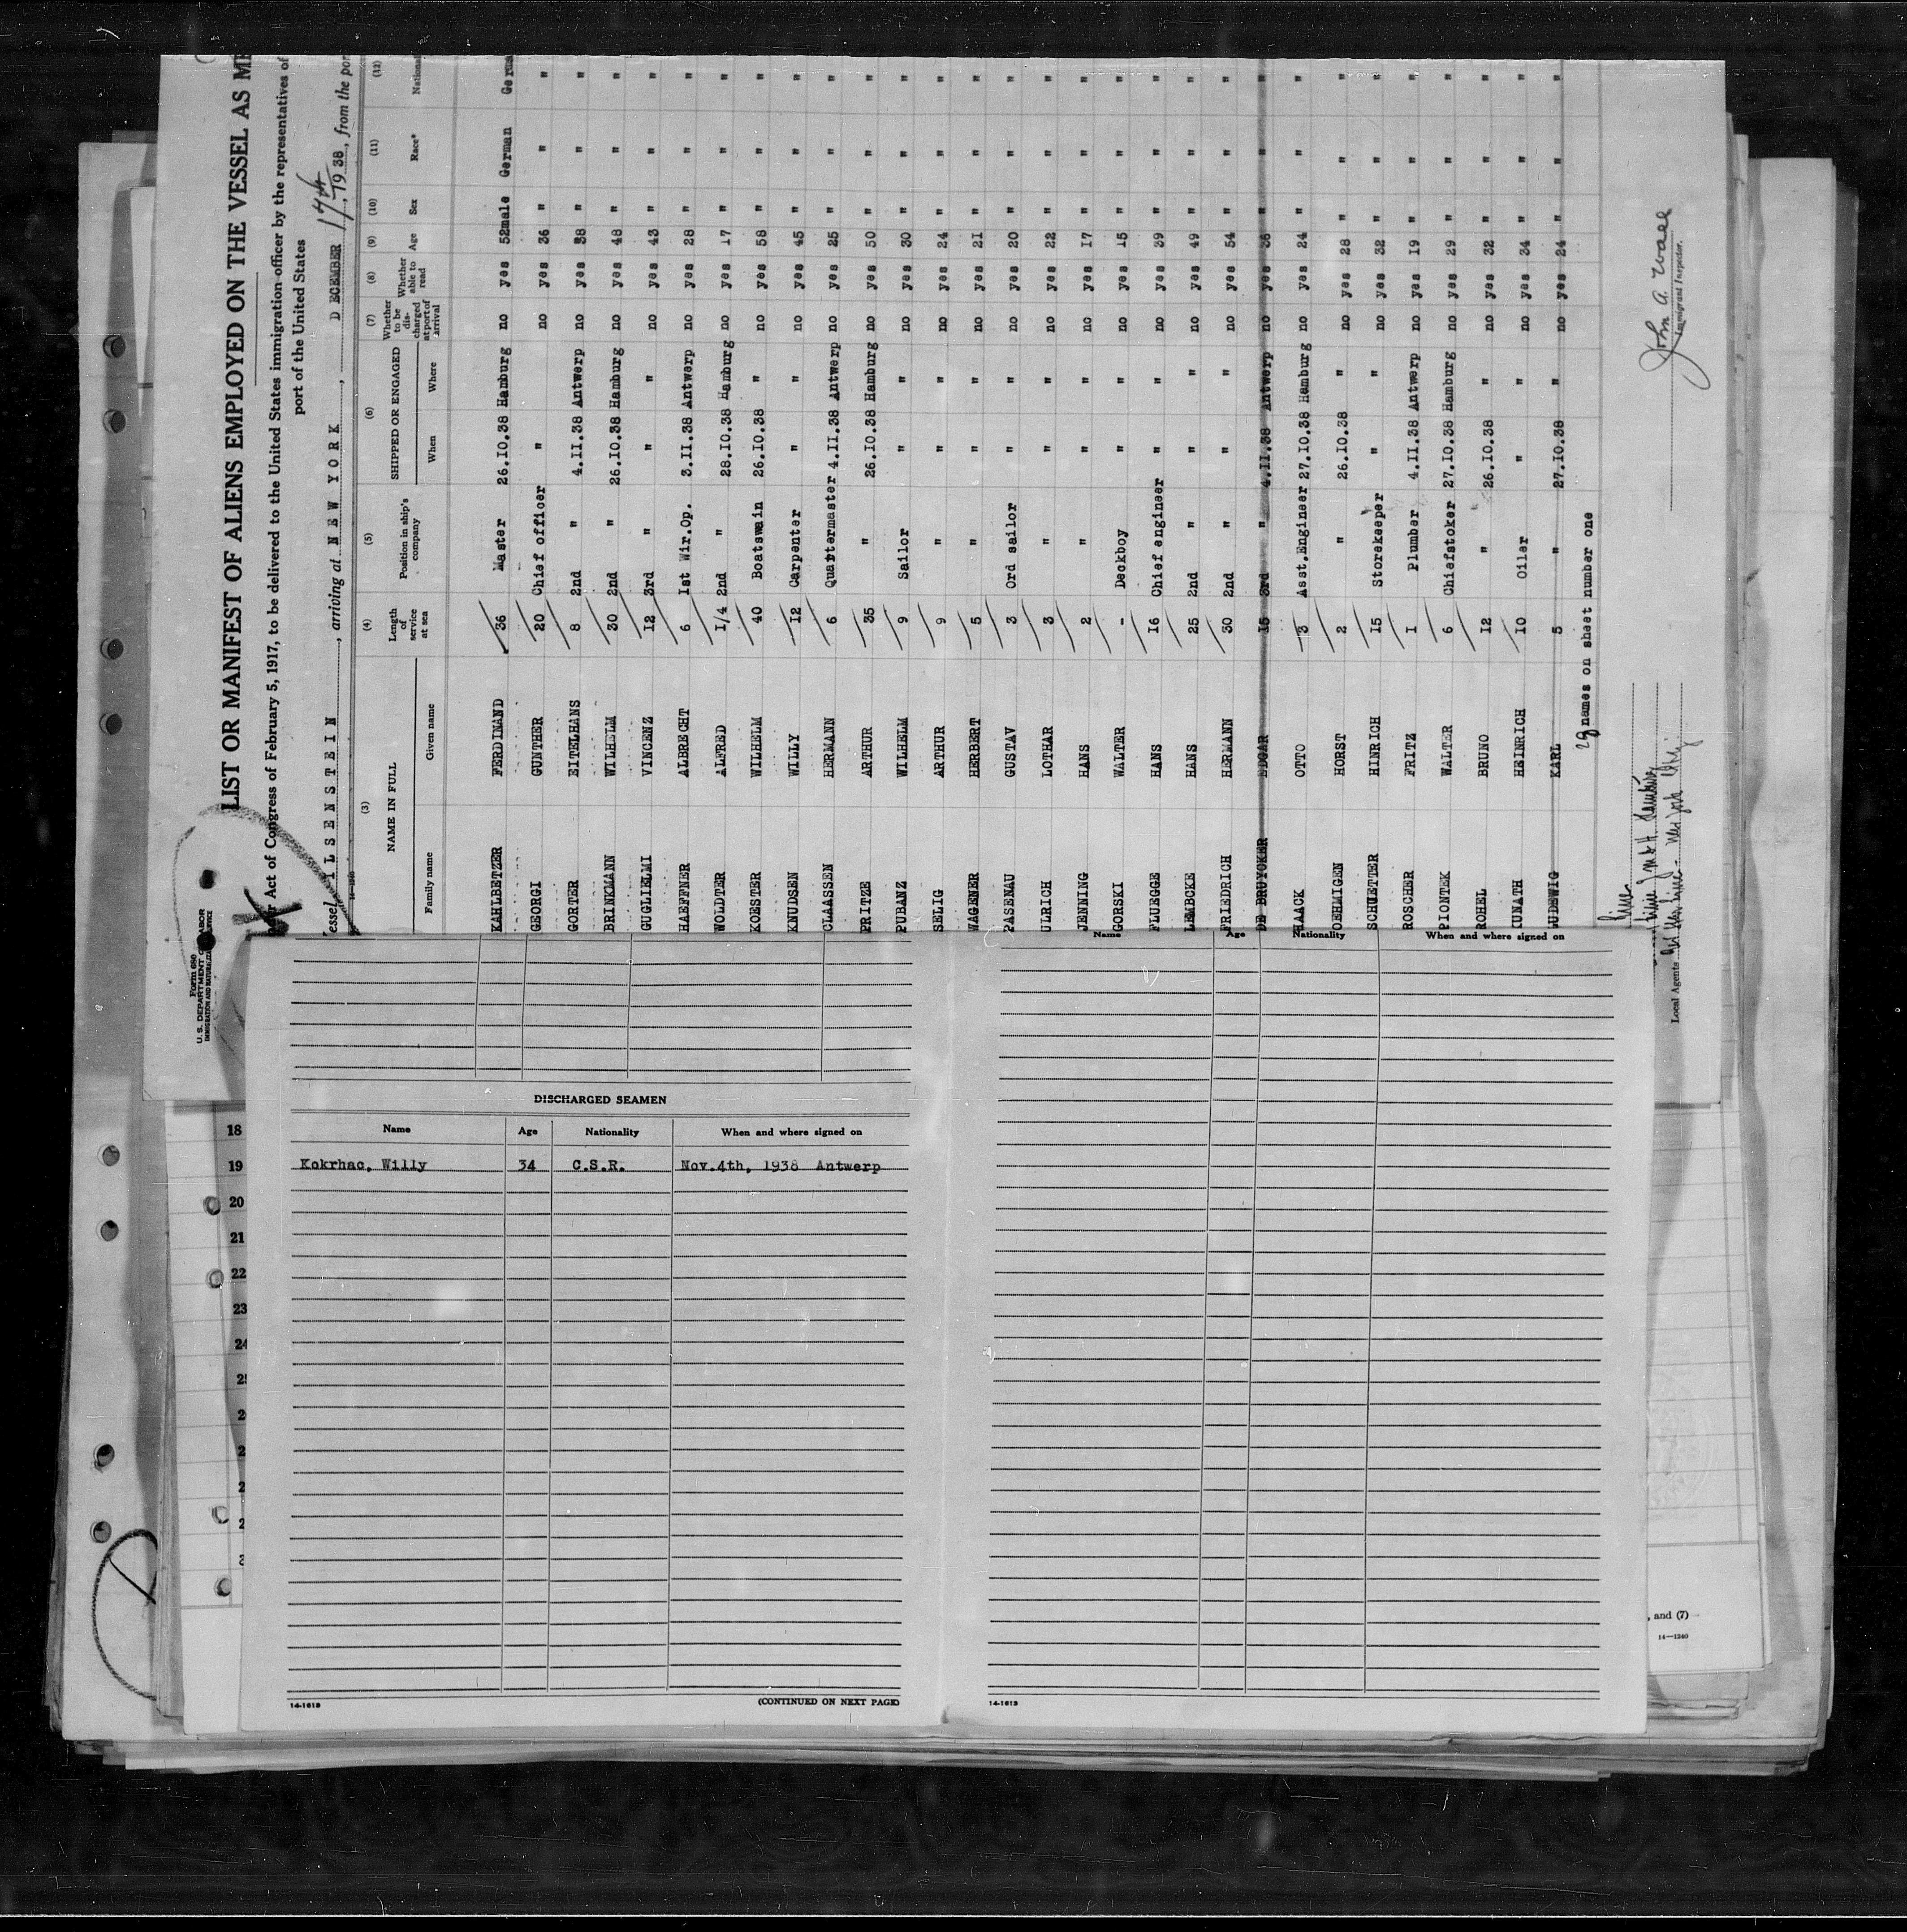 Form 680
U. S. DEPARTMENT OF LABOR
IMMIGRATION AND NATURALIZATION SERVICE
LIST OR MANIFEST OF ALIENS EMPLOYED ON THE VESSEL AS ME
Act of Congress of February 5, 1917, to be delivered to the United States immigration officer by the representatives of
port of the United States
essel ILSENSTEIN, arriving at NEW YORK, DECEMBER 17th, 1938, from the por
(3) (4) (5) (6) (7) (8) (9) (10) (11) (12)
NAME IN FULL Length of service at sea Position in ship's company SHIPPED OR ENGAGED Whether to be discharged at port of arrival Whether able to read Age Sex Race* National
Family name Given name When Where
KAHLBETZER FERDINAND 36 Master 26.10.38 Hamburg no yes 52 male German Germa
GEORGI GUNTHER 20 Chief officer " no yes 36 " " "
GORTER EITELHANS 8 2nd " 4.11.38 Antwerp no yes 38 " " "
BRINKMANN WILHELM 30 2nd " 26.10.38 Hamburg no yes 48 " " "
GUGLIELMI VINCENZ 12 3rd " " " no yes 43 " " "
HAEFFNER ALBRECHT 6 1st Wir.Op. 3.11.38 Antwerp no yes 28 " " "
WOLDTER ALFRED 1/4 2nd " 28.10.38 Hamburg no yes 17 " " "
KOESTER WILHELM 40 Boatswain 26.10.38 " no yes 58 " " "
KNUDSEN WILLY 12 Carpenter " " no yes 45 " " "
CLAASSEN HERMANN 6 Quartermaster 4.11.38 Antwerp no yes 25 " " "
PRITZE ARTHUR 35 " 26.10.38 Hamburg no yes 50 " " "
PUBANZ WILHELM 9 Sailor " " no yes 30 " " "
SELIG ARTHUR 9 " " " no yes 24 " " "
WAGENER HERBERT 5 " " " no yes 21 " " "
PASENAU GUSTAV 3 Ord sailor " " no yes 20 " " "
ULRICH LOTHAR 3 " " " no yes 22 " " "
JENNING HANS 2 " " " no yes 17 " " "
GORSKI WALTER - Deckboy " " no yes 15 " " "
FLUEGGE HANS 16 Chief engineer " " no yes 39 " " "
LEMBCKE HANS 25 2nd " " " no yes 49 " " "
FRIEDRICH HERMANN 30 2nd " " " no yes 54 " " "
DE BRUYCKER EDGAR 15 3rd " 4.11.38 Antwerp no yes 36 " " "
HAACK OTTO 3 Asst.Engineer 27.10.38 Hamburg no yes 24 " " "
OEHMIGEN HORST 2 " 26.10.38 " no yes 28 " " "
SCHUETTER HINRICH 15 Storekeeper " " no yes 32 " " "
ROSCHER FRITZ 1 Plumber 4.11.38 Antwerp no yes 19 " " "
PIONTEK WALTER 6 Chiefstoker 27.10.38 Hamburg no yes 29 " " "
ROHEL BRUNO 12 " 26.10.38 " no yes 32 " " "
KUNATH HEINRICH 10 Oiler " " no yes 34 " " "
LUDEWIG KARL 5 " 27.10.38 " no yes 24 " " "
29 names on sheet number one
Line
Local Agents New York City
John A.
Immigrant Inspector.
DISCHARGED SEAMEN
Name Age Nationality When and where signed on
Kokrhac, Willy 34 C.S.R. Nov.4th, 1938 Antwerp
14-1613
(CONTINUED ON NEXT PAGE)
Name Age Nationality When and where signed on
14-1613
18
19
20
21
22
23
24
, and (7)
14—1240